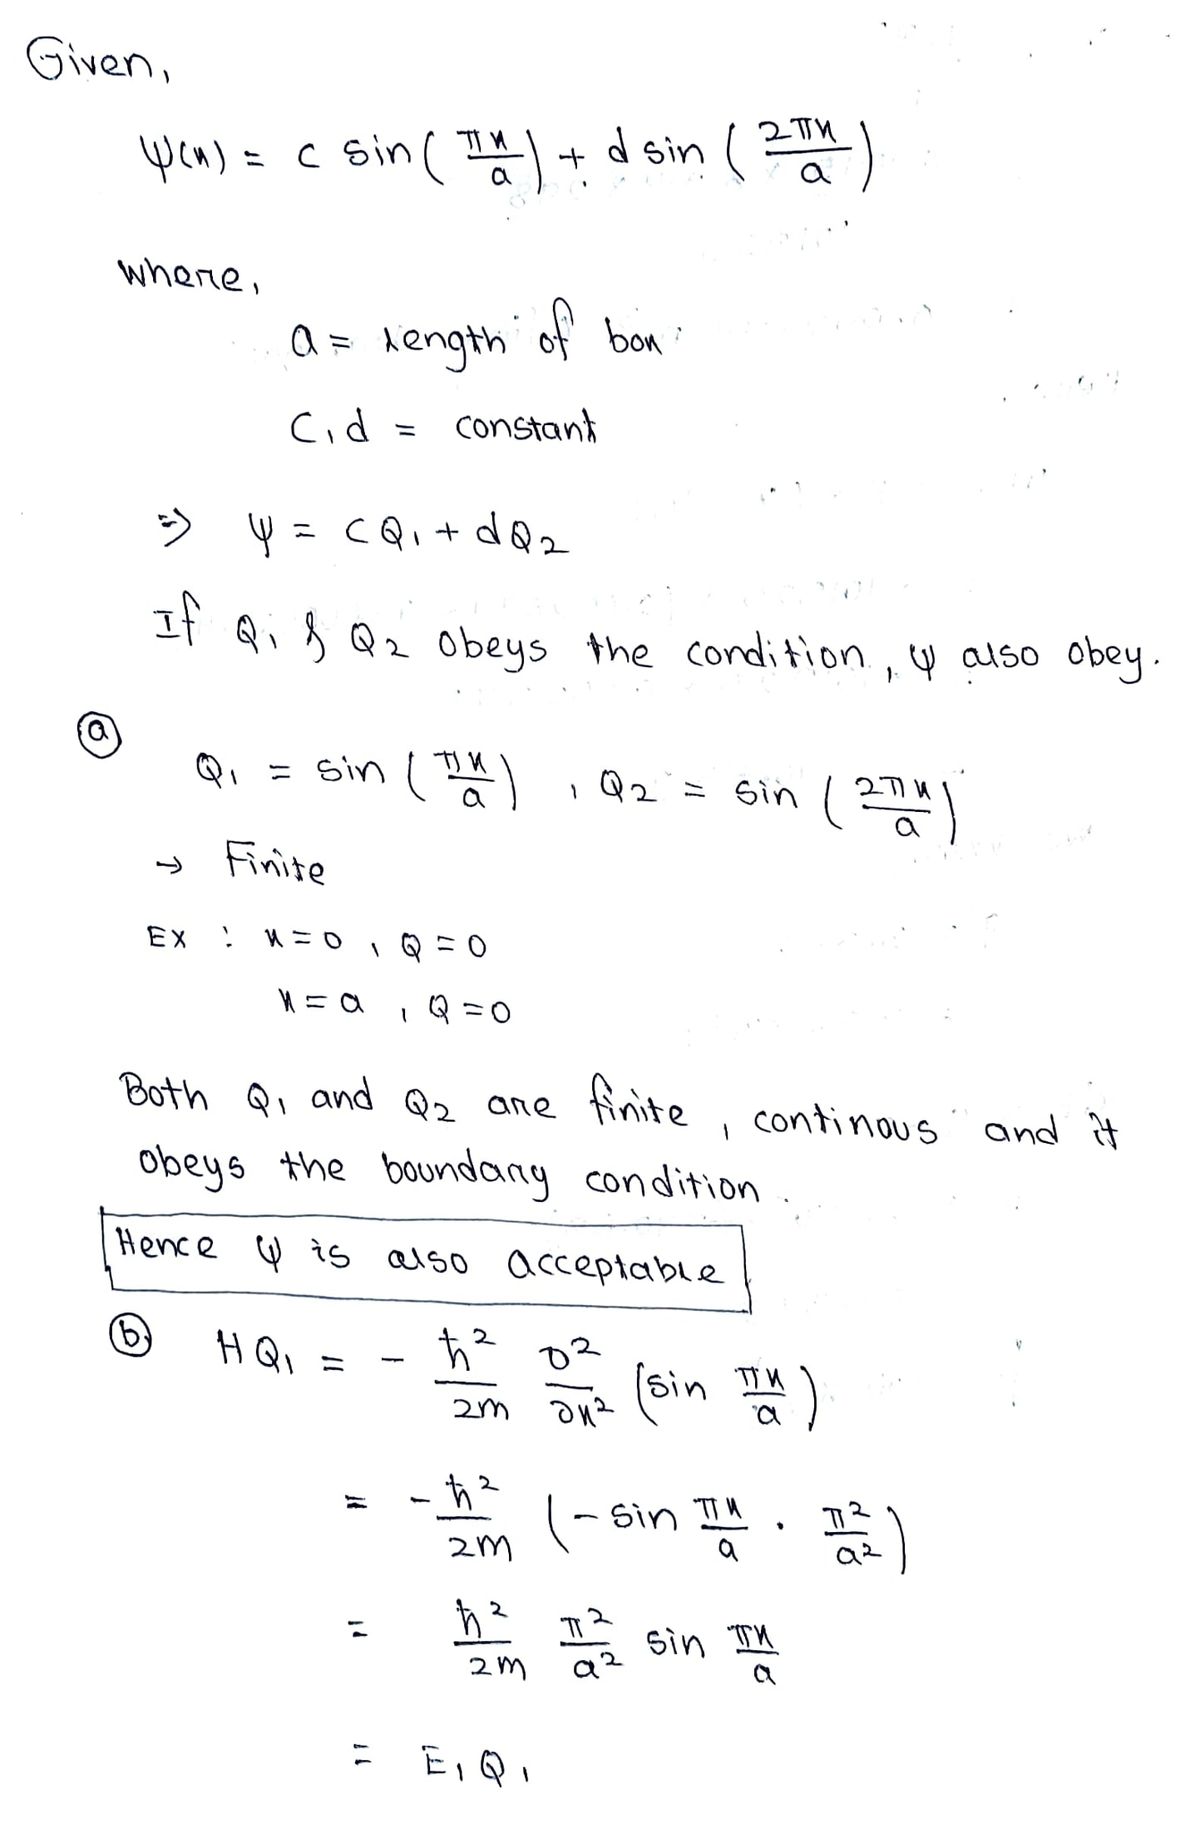 Given,
ψ(x) = c sin(πx/a) + d sin(2πx/a)
where,
a = Length of box
c, d = constant
⇒ ψ = cQ₁ + dQ₂
If Q₁ & Q₂ obeys the condition, ψ also obey.
ⓐ
Q₁ = sin(πx/a), Q₂ = sin(2πx/a)
→ Finite
EX : x=0, Q=0
x=a, Q=0
Both Q₁ and Q₂ are finite, continous and it
obeys the boundary condition.
Hence ψ is also acceptable
ⓑ HQ₁ = - ħ²/2m ∂²/∂x² (sin πx/a)
= -ħ²/2m (-sin πx/a · π²/a²)
= ħ²/2m π²/a² sin πx/a
= E₁Q₁